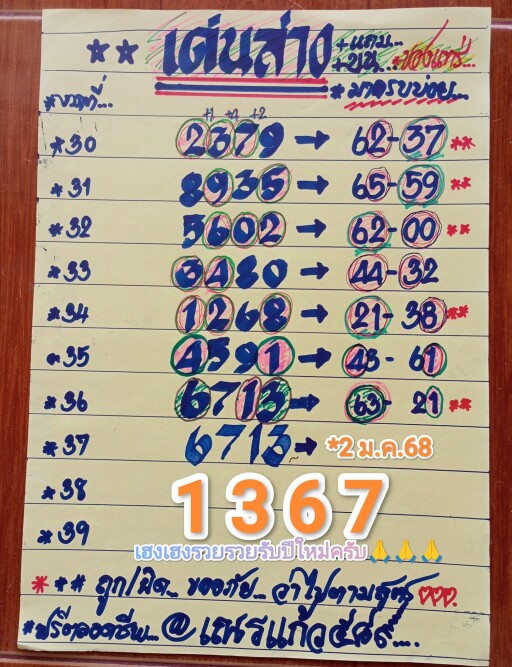 ** เด่นล่าง +แถม... +บน... *ของแทร่...
*มาครบบ่อย...
*งวดที่...
+1 +4 +2
*30 2379 → 62-37 **
*31 8935 → 65-59 **
*32 5602 → 62-00 **
*33 3480 → 44-32
*34 1268 → 21-38 **
*35 4591 → 43-61
*36 6713 → 63-21 **
*37 6713 → *2 ม.ค.68
*38 1367
*39 เฮงเฮงรวยรวยรับปีใหม่ครับ🙏🙏🙏
*** ถูก/ผิด... ขออภัย... ว่าไปตามสูตร
*ฟรีตลอดชีพ... @เณรแก้ว๕๘๙....